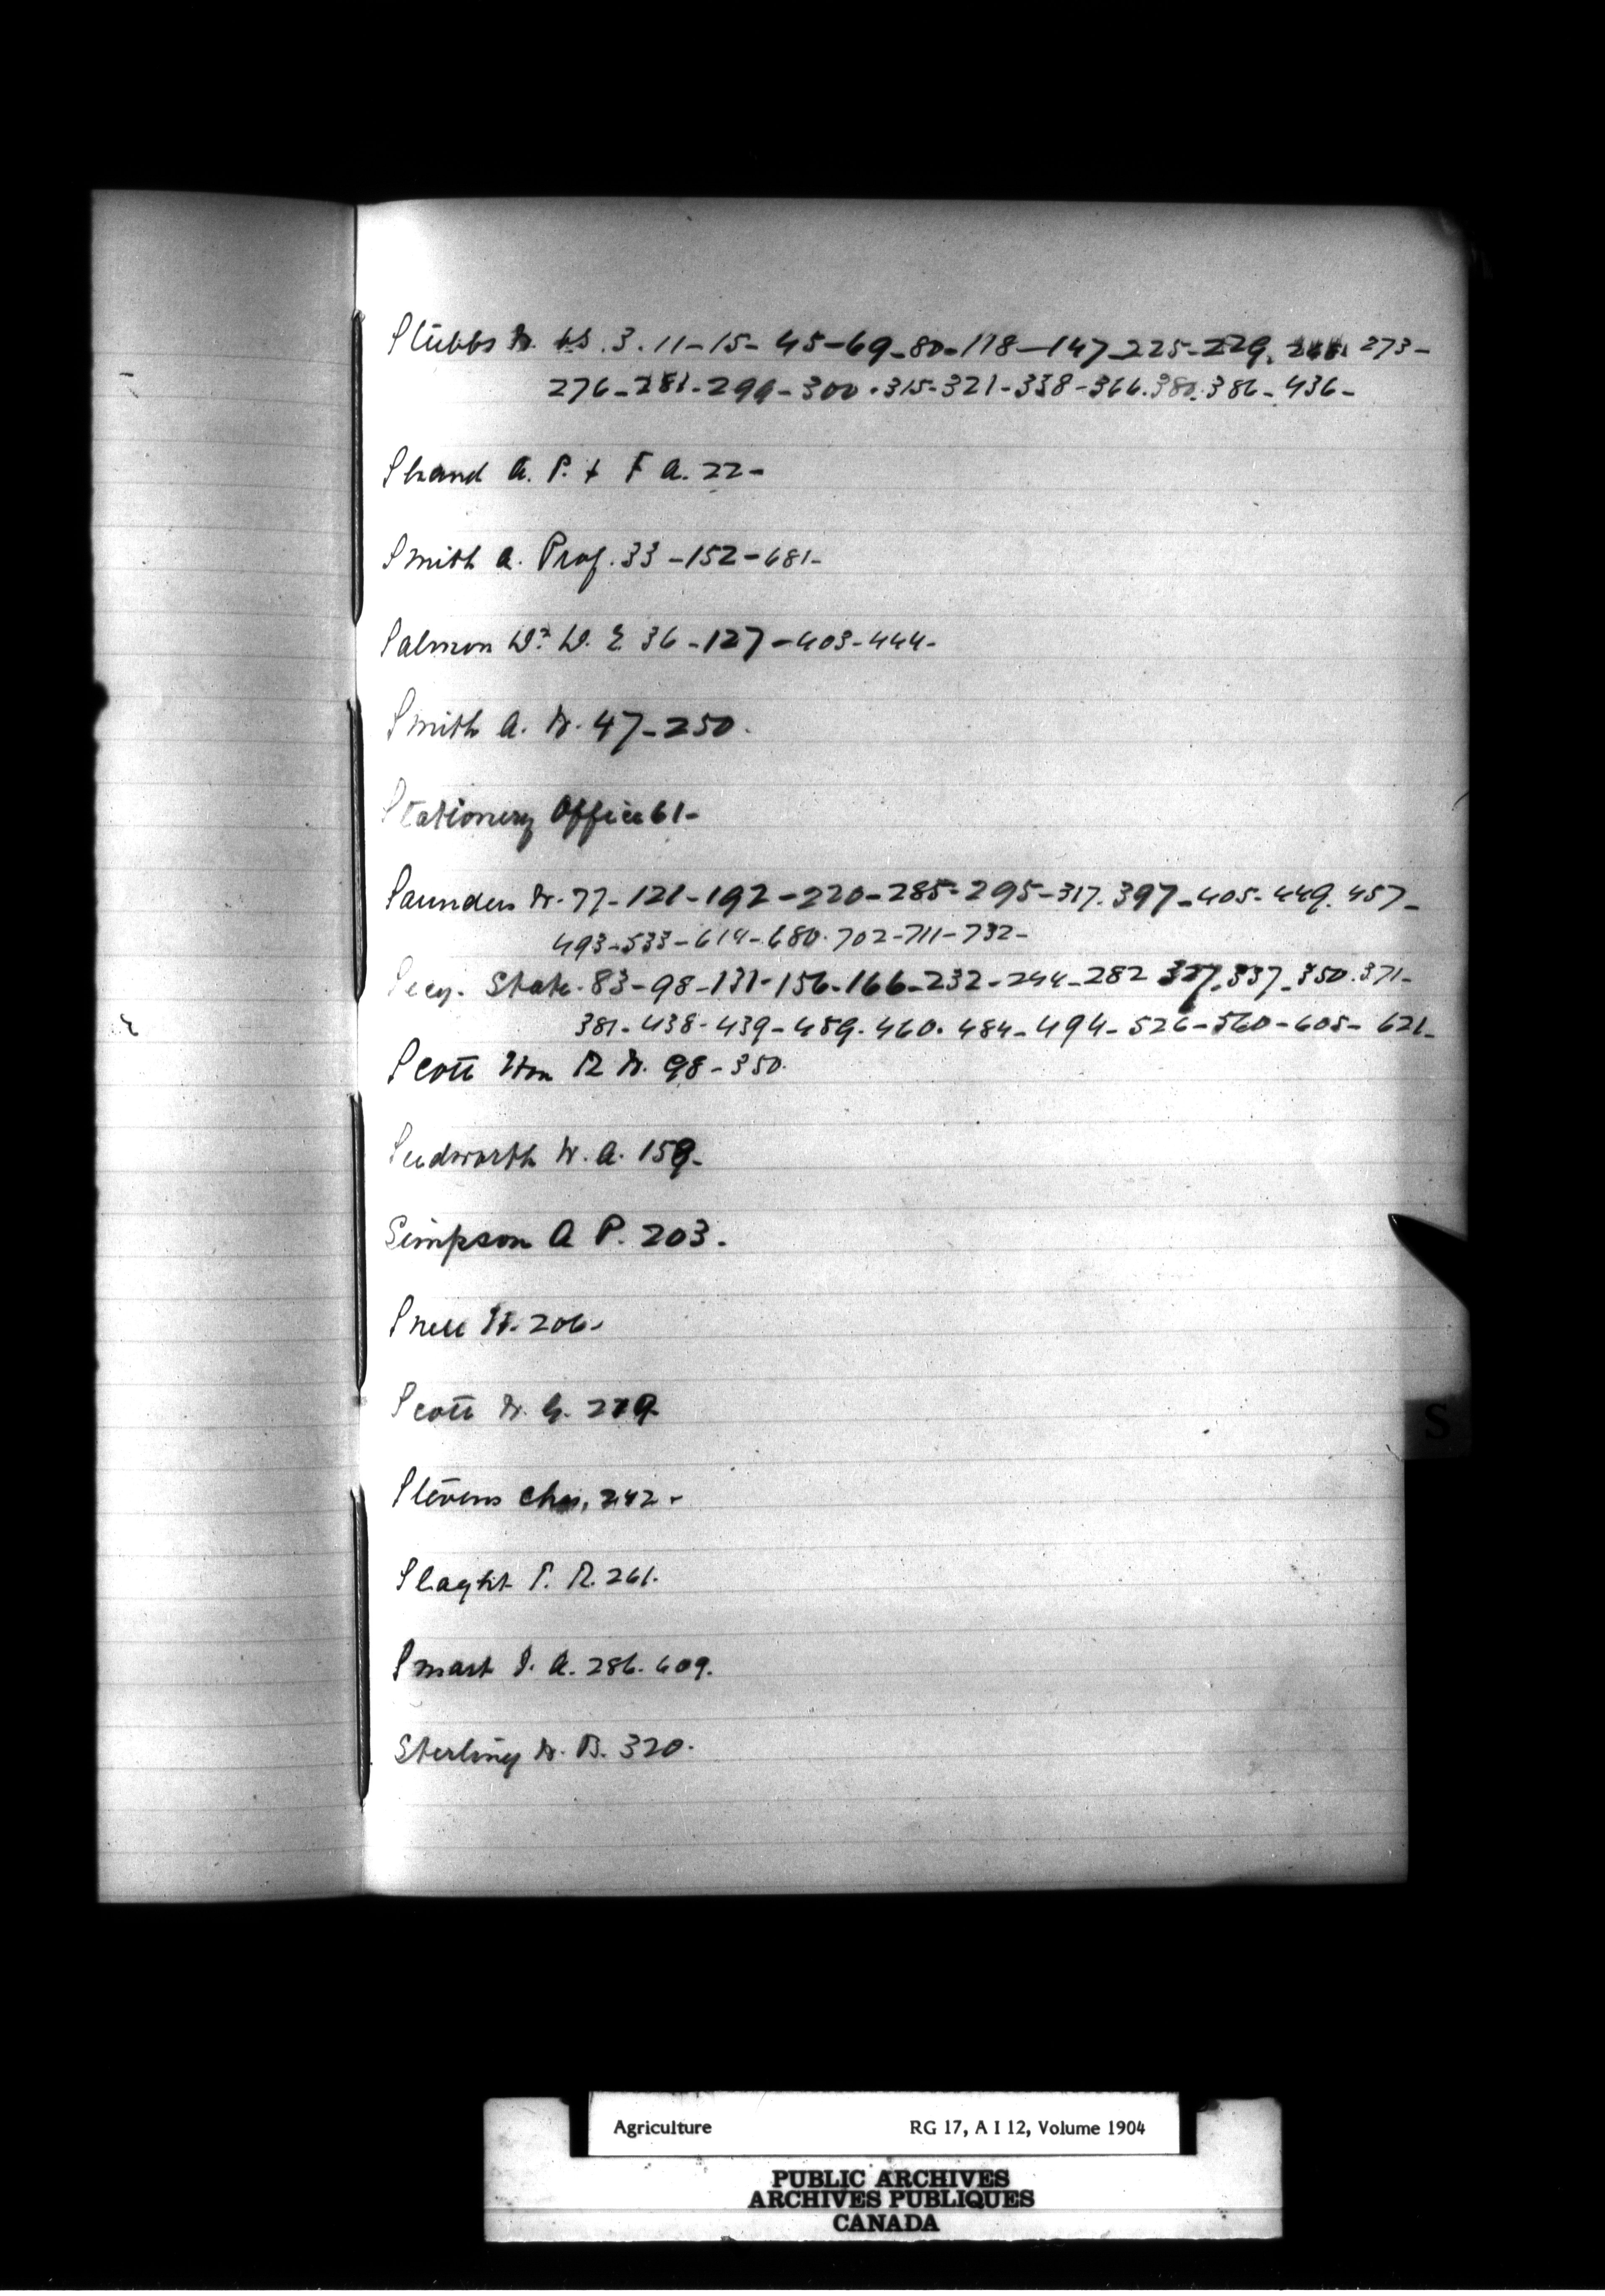 Stubbs W. W. 3. 11-15- 45-69-80-118-147-225-229. 273-
276-281-299-300-315-321-338-366.380.386-436-
Shand A. P. & F A. 22-
Smith A. Prof. 33-152-681-
Salmon Dr D. E 36-127-403-444-
Smith A. W. 47-250.
Stationery Office 61-
Saunders W. 77-121-192-220-285-295-317.397-405-449.457-
493-533-614-680.702-711-732-
Secy. State. 83-98-131-156-166-232-244-282 327.337-350.371-
381-438-439-459.460.484-494-526-560-605-621-
Scott Hon R W. 98-350.
Sudworth W. A. 159-
Simpson A P. 203.
Snell H. 206-
Scott W. G. 219.
Stevens Chas, 242-
Slaght T. R. 261.
Smart J. A. 286.609.
Sterling W. B. 320.
S
Agriculture RG 17, A I 12, Volume 1904
PUBLIC ARCHIVES
ARCHIVES PUBLIQUES
CANADA